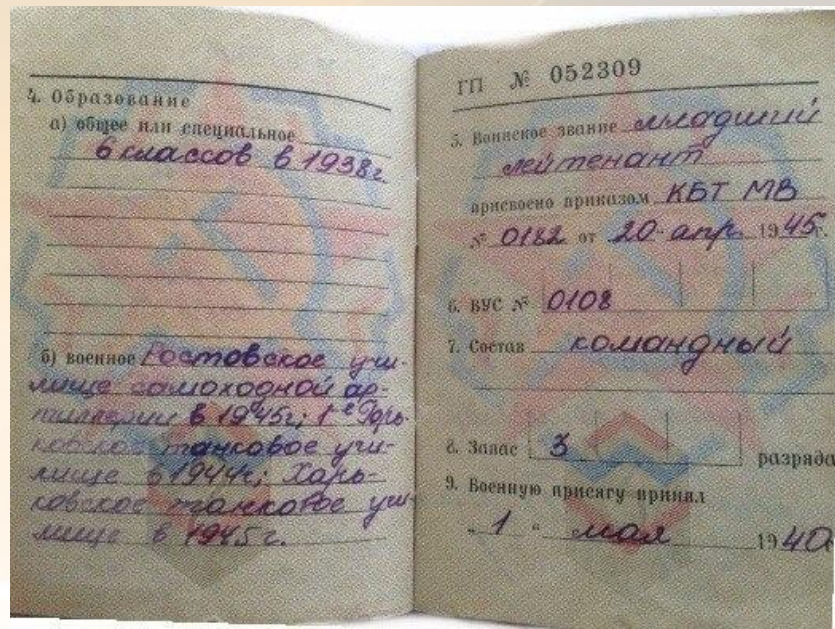 4. Образование
а) общее или специальное
6 классов в 1938г.
б) военное Ростовское учи-
лище самоходной ар-
тиллерии в 1945г; 1е Горь-
ковское танковое учи-
лище в 1944г; Харь-
ковское танковое учи-
лище в 1945г.
ГП № 052309
5. Воинское звание младший
лейтенант
присвоено приказом КБТ МВ
№ 0182 от 20 апр. 1945г.
6. ВУС № 0108
7. Состав командный
8. Запас 3 разряда
9. Военную присягу принял
„1“ мая 1940